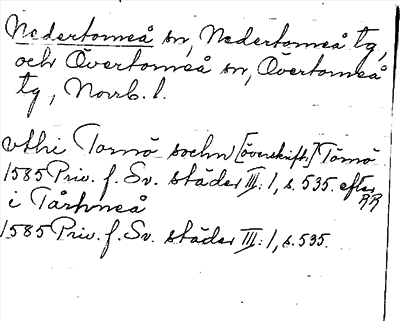 Nedertorneå sn, Nedertorneå tg,
och Övertorneå sn, Övertorneå
tg, Norrb. l.
vthi Tornö sochn [överskrift.] Tornö
1585 Priv. f. Sv. städer III: 1, s. 535. efter
RR
i Tårhneå
1585 Priv. f. Sv. städer III: 1, s. 535.